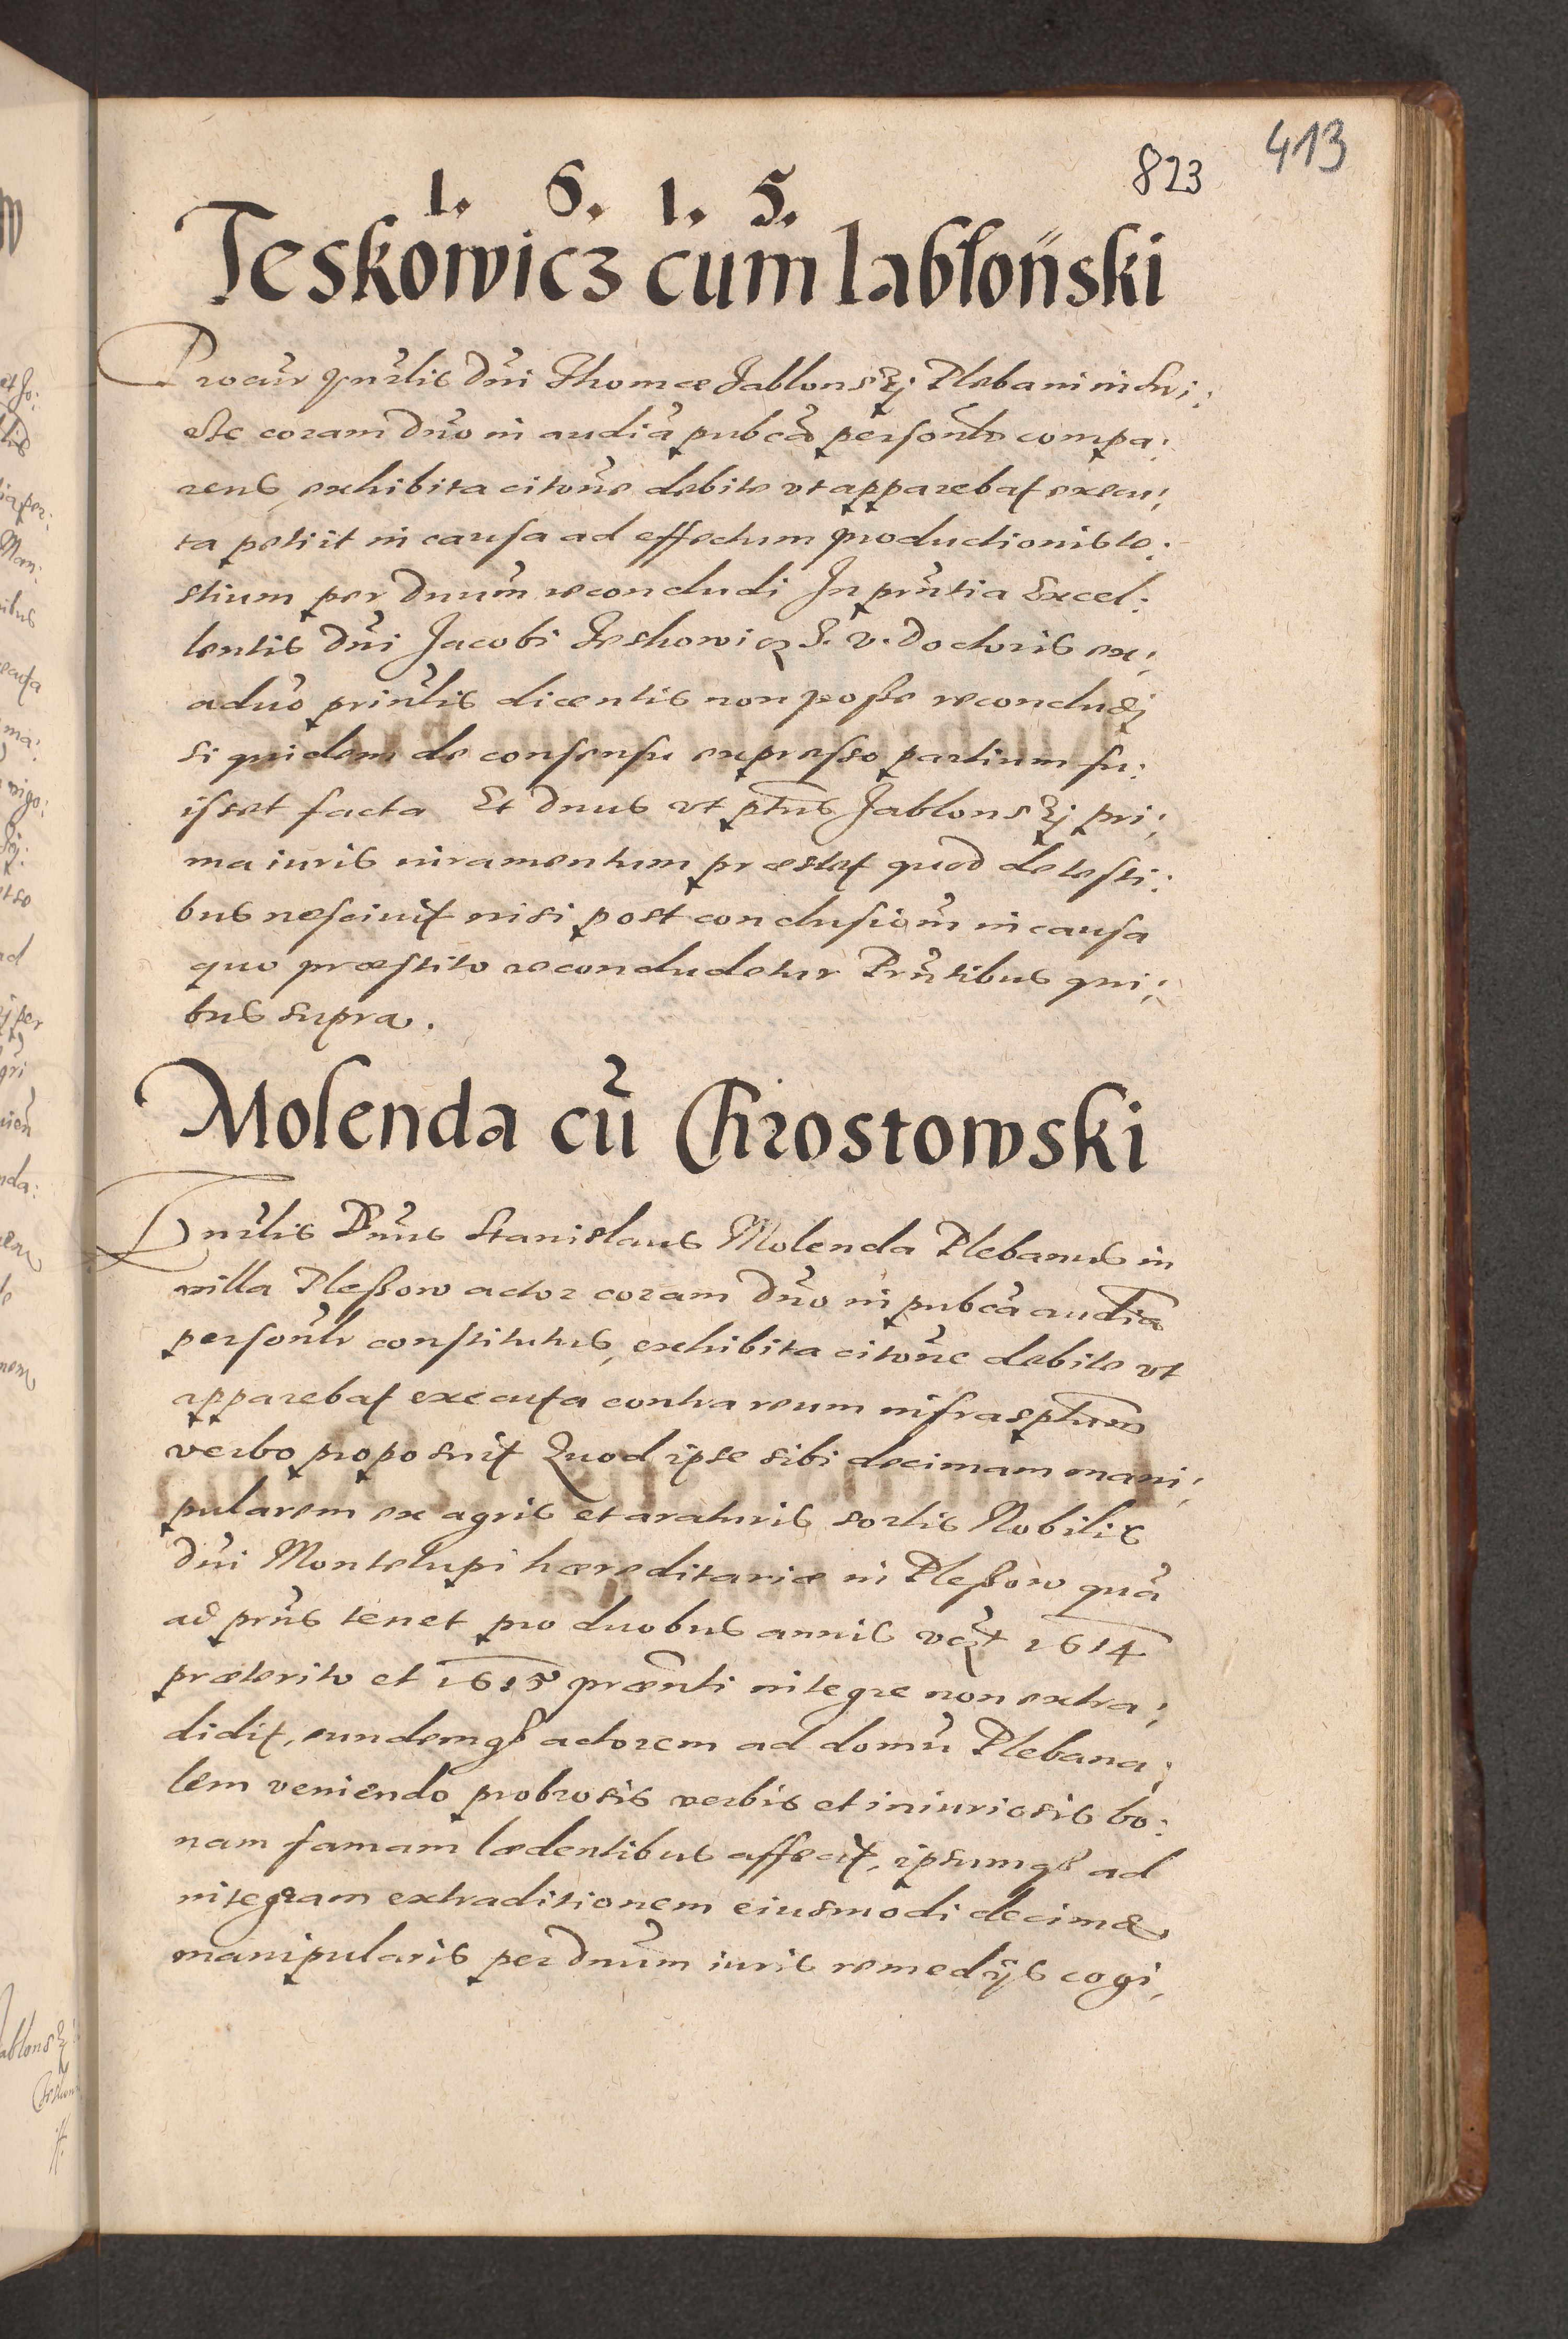 413
823
1. 6. 1. 5.
Teskowicz cum Iabłoński
Procur gnrlis Dni Thomæ Jablonskij Plebani in
coram Dno in audia pubca personlr compa:
rens, exhibita citone debite vt apparebat execu:
ta petiit in causa ad effectum productionis te:
stium per Dnum reconcludi In prntia Excel:
lentis Dni Jacobi Teskowicz I. V. Doctoris ex:
aduo prinlis dicentis non posse reconcludj
si quidem de consensu expresso partium fu:
isset facta Et Dnus vt ptus Jablonskij pri:
ma iuris iuramentum præstet quod de testi:
bus nesciuit nisi post conclusionm in causa
quo præstito reconcludetur Prntibus qui:
bus supra.
Molenda cũ Chrostowski
Gnrlis Dnus Stanislaus Molenda Plebanus in
villa Pleßow actor coram Dno in pubca audia
personlr constitutus, exhibita citone debite vt
apparebat executa contra reum infrasptum
verbo proposuit Quod ipse sibi decimam mani:
pularem ex agris et araturis sortis Nobilis
Dni Montelupi hæreditariæ in Pleßow quã
ad prns tenet pro duobus annis vczt 1614
præterito et 1615 præsnti integre non extra:
didit, eundemq3 actorem ad domũ Plebana:
lem veniendo probrosis verbis et iniuriosis bo:
nam famam lædentibus affecit, ipsumq3 ad
integram extraditionem eiusmodi decimæ
manipularis per Dnum iuris remedijs cogi,